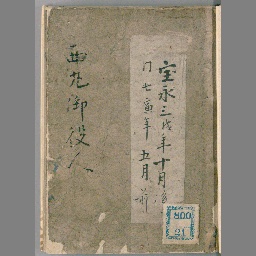 宝永三戌年十月ゟ
同七寅年五月前
西丸御役人
800
21